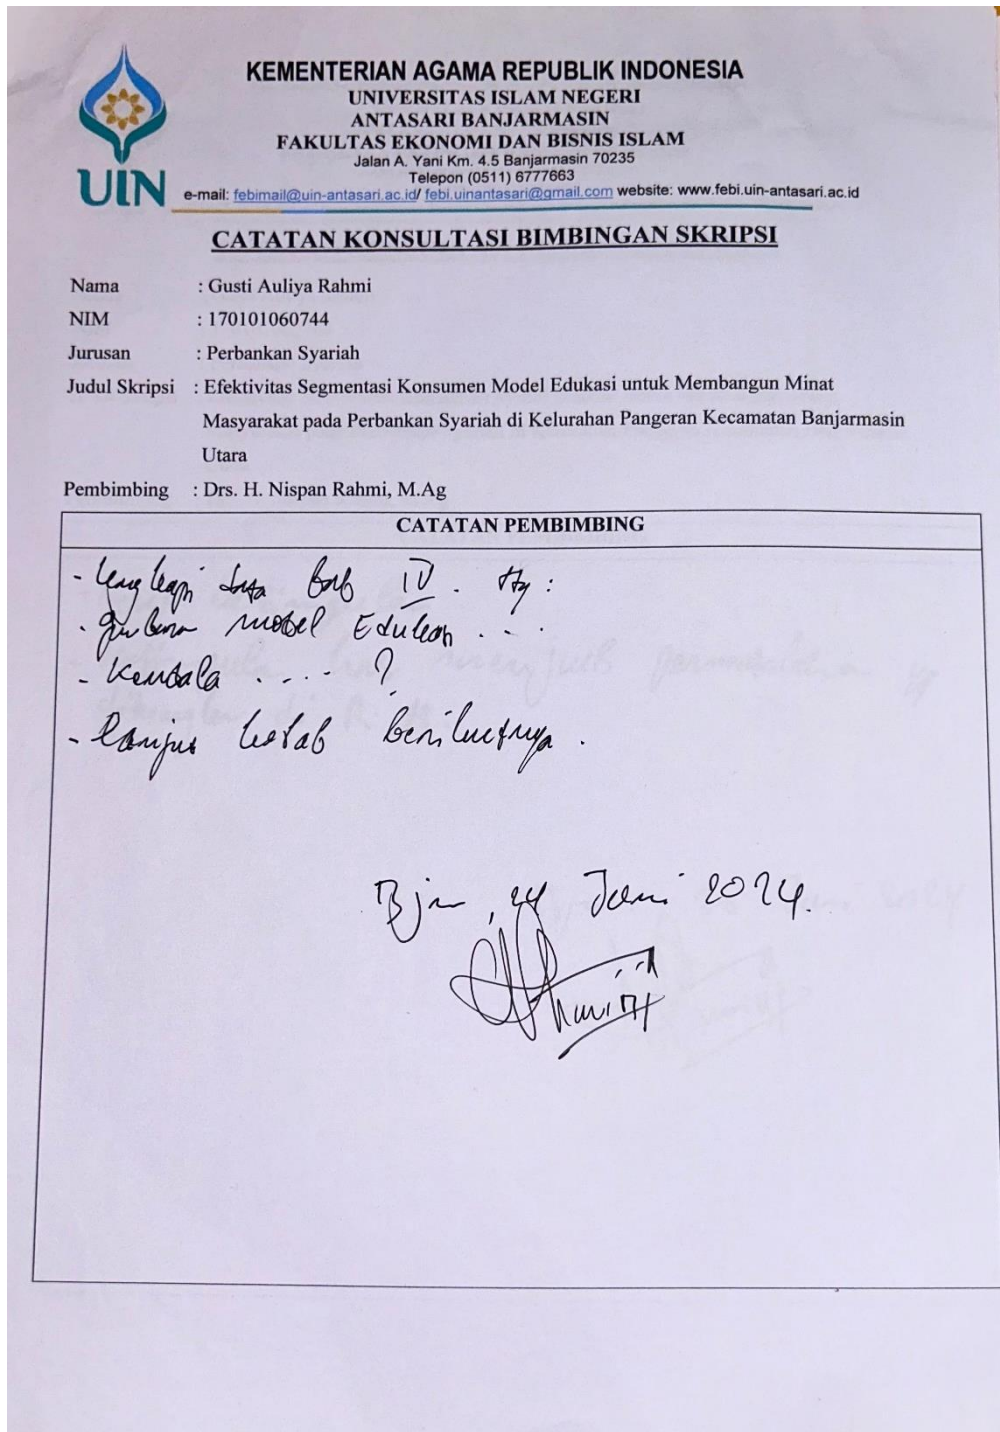 KEMENTERIAN AGAMA REPUBLIK INDONESIA
UNIVERSITAS ISLAM NEGERI
ANTASARI BANJARMASIN
FAKULTAS EKONOMI DAN BISNIS ISLAM
Jalan A. Yani Km. 4.5 Banjarmasin 70235
Telepon (0511) 6777663
UIN
e-mail: febimail@uin-antasari.ac.id/ febi.uinantasari@gmail.com website: www.febi.uin-antasari.ac.id
CATATAN KONSULTASI BIMBINGAN SKRIPSI
Nama : Gusti Auliya Rahmi
NIM : 170101060744
Jurusan : Perbankan Syariah
Judul Skripsi : Efektivitas Segmentasi Konsumen Model Edukasi untuk Membangun Minat
Masyarakat pada Perbankan Syariah di Kelurahan Pangeran Kecamatan Banjarmasin
Utara
Pembimbing : Drs. H. Nispan Rahmi, M.Ag
CATATAN PEMBIMBING
- lengkapi data Bab IV. ttg:
model Edukasi . . .
- Kendala . . . . ?
- lanjut ke bab berikutnya.
Bjm, 24 Juni 2024.